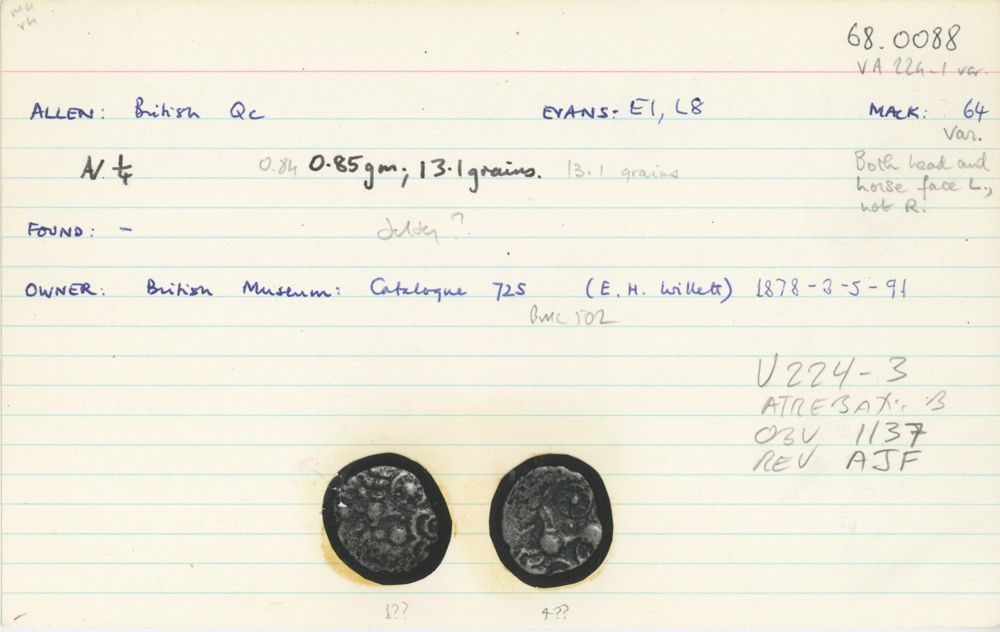 68.0088
VA 224-1 var.
ALLEN: British Qc EVANS: E1, L8 MACK: 64
Var.
N 1/4 0.84 0.85gm; 13.1grains. 13.1 grains
Both head and
horse face L.,
not R.
FOUND: - ?
OWNER: British Museum: Catalogue 725 (E. H. Willett) 1878-3-5-91
BMC 502
V224-3
ATREBATIC B
OBV 1137
REV AJF
1?? 4??